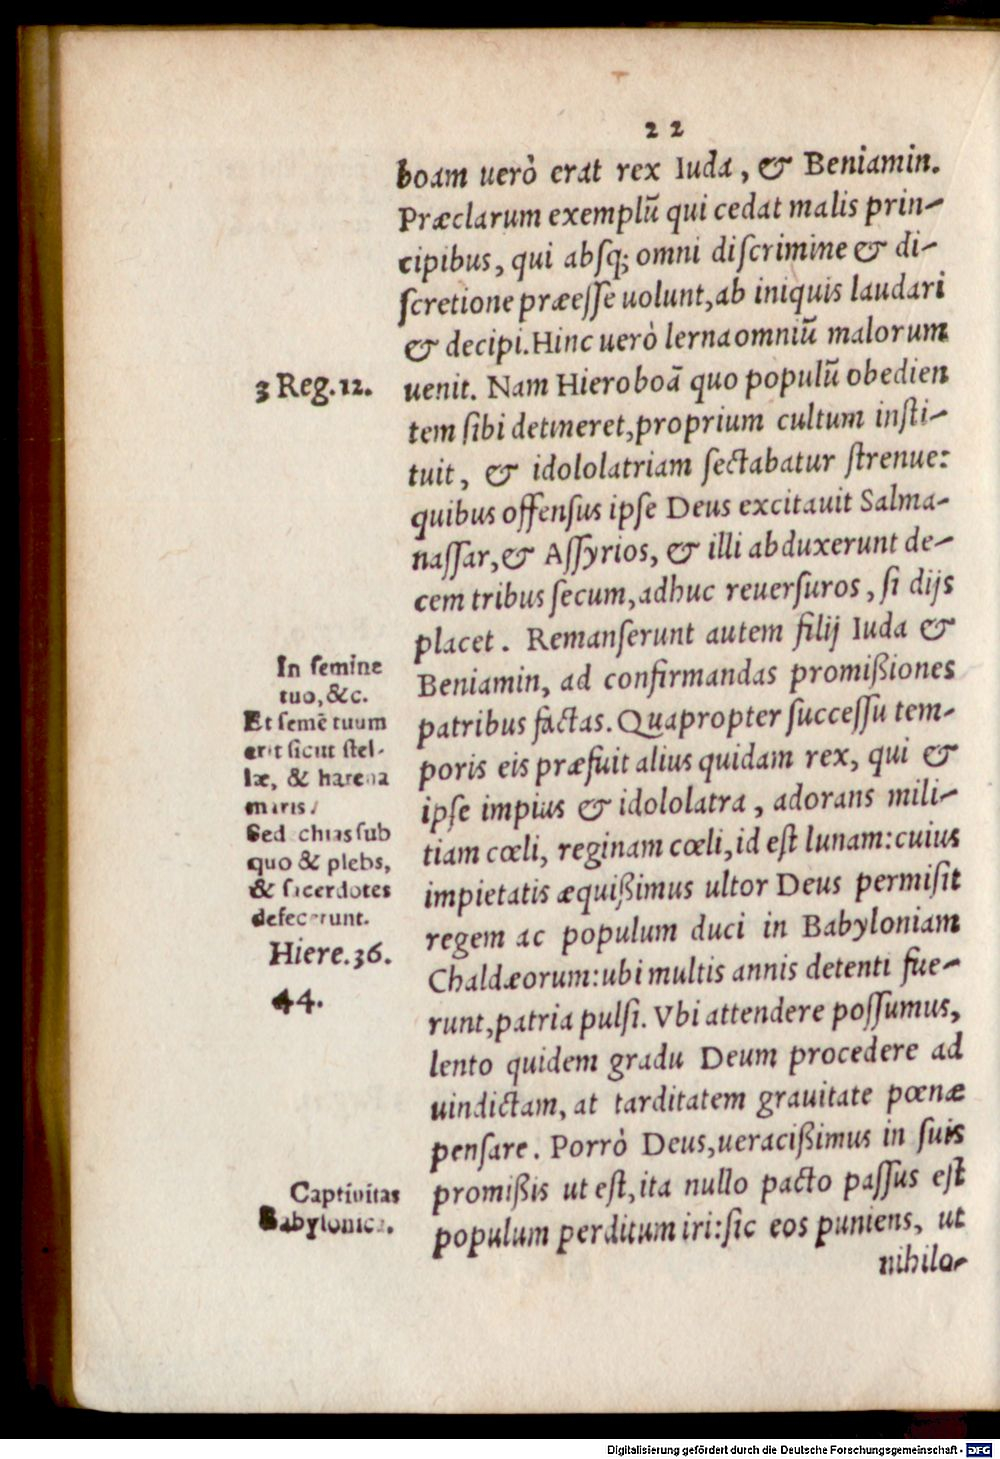 22
boam uerò erat rex Iuda, & Beniamin.
Præclarum exemplũ qui cedat malis prin-
cipibus, qui absq; omni discrimine & di-
scretione præesse uolunt, ab iniquis laudari
& decipi. Hinc uerò lerna omniũ malorum
3 Reg. 12.
uenit. Nam Hieroboã quo populũ obedien
tem sibi detineret, proprium cultum insti-
tuit, & idololatriam sectabatur strenue:
quibus offensus ipse Deus excitauit Salma-
nassar, & Assyrios, & illi abduxerunt de-
cem tribus secum, adhuc reuersuros, si dijs
placet. Remanserunt autem filij Iuda &
Beniamin, ad confirmandas promißiones
patribus factas. Quapropter successu tem-
poris eis præfuit alius quidam rex, qui &
ipse impius & idololatra, adorans mili-
tiam cœli, reginam cœli, id est lunam: cuius
impietatis æquißimus ultor Deus permisit
regem ac populum duci in Babyloniam
Chaldæorum: ubi multis annis detenti fue-
runt, patria pulsi. Vbi attendere possumus,
lento quidem gradu Deum procedere ad
uindictam, at tarditatem grauitate pœnæ
pensare. Porrò Deus, ueracißimus in suis
promißis ut est, ita nullo pacto passus est
populum perditum iri: sic eos puniens, ut
nihilo-
In semine
tuo, &c.
Et semẽ tuum
erit sicut stel-
læ, & harena
maris.
Sedechias sub
quo & plebs,
& sacerdotes
defecerunt.
Hiere. 36.
44.
Captiuitas
Babylonica.
Digitalisierung gefördert durch die Deutsche Forschungsgemeinschaft - DFG